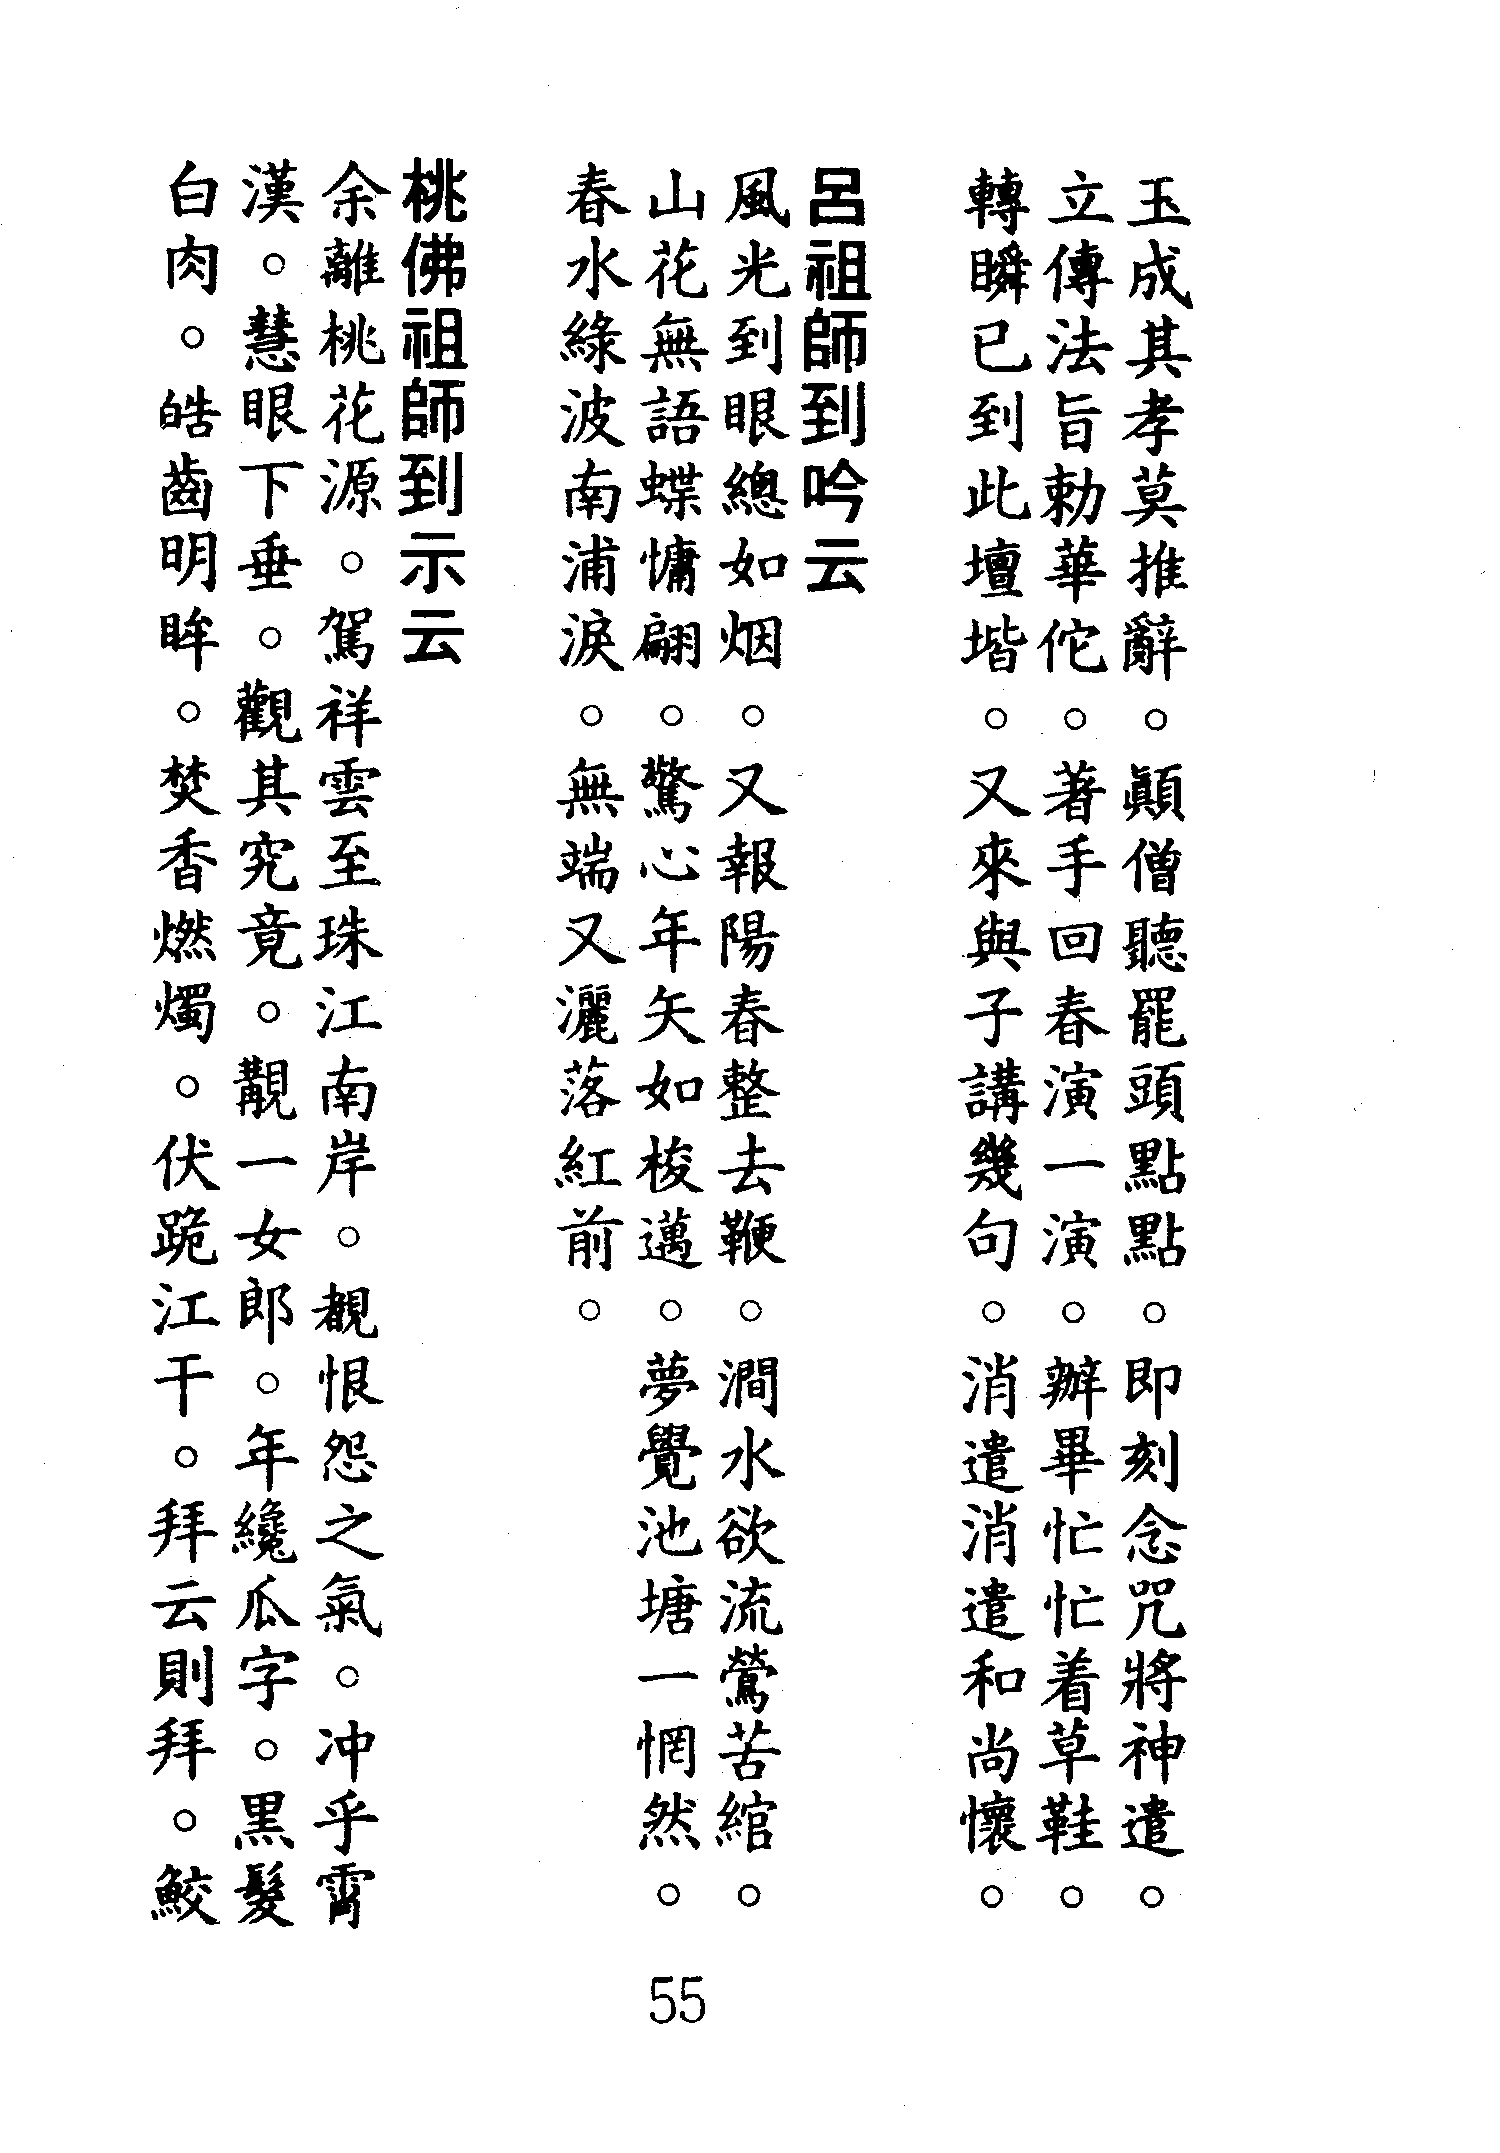 玉成其孝莫推辭。顚僧聽罷頭點點。即刻念咒將神遣。
立傳法旨勅華佗。著手回春演一演。辦畢忙忙着草鞋。
轉瞬已到此壇堦。又來與子講幾句。消遣消遣和尚懷。
呂祖師到吟云
風光到眼總如烟。又報陽春整去鞭。澗水欲流鶯苦綰。
山花無語蝶慵翩。驚心年矢如梭邁。夢覺池塘一惘然。
春水綠波南浦淚。無端又灑落紅前。
桃佛祖師到示云
余離桃花源。駕祥雲至珠江南岸。覩恨怨之氣。冲乎霄
漢。慧眼下垂。觀其究竟。覯一女郎。年纔瓜字。黑髮
白肉。皓齒明眸。焚香燃燭。伏跪江干。拜云則拜。鮫
55